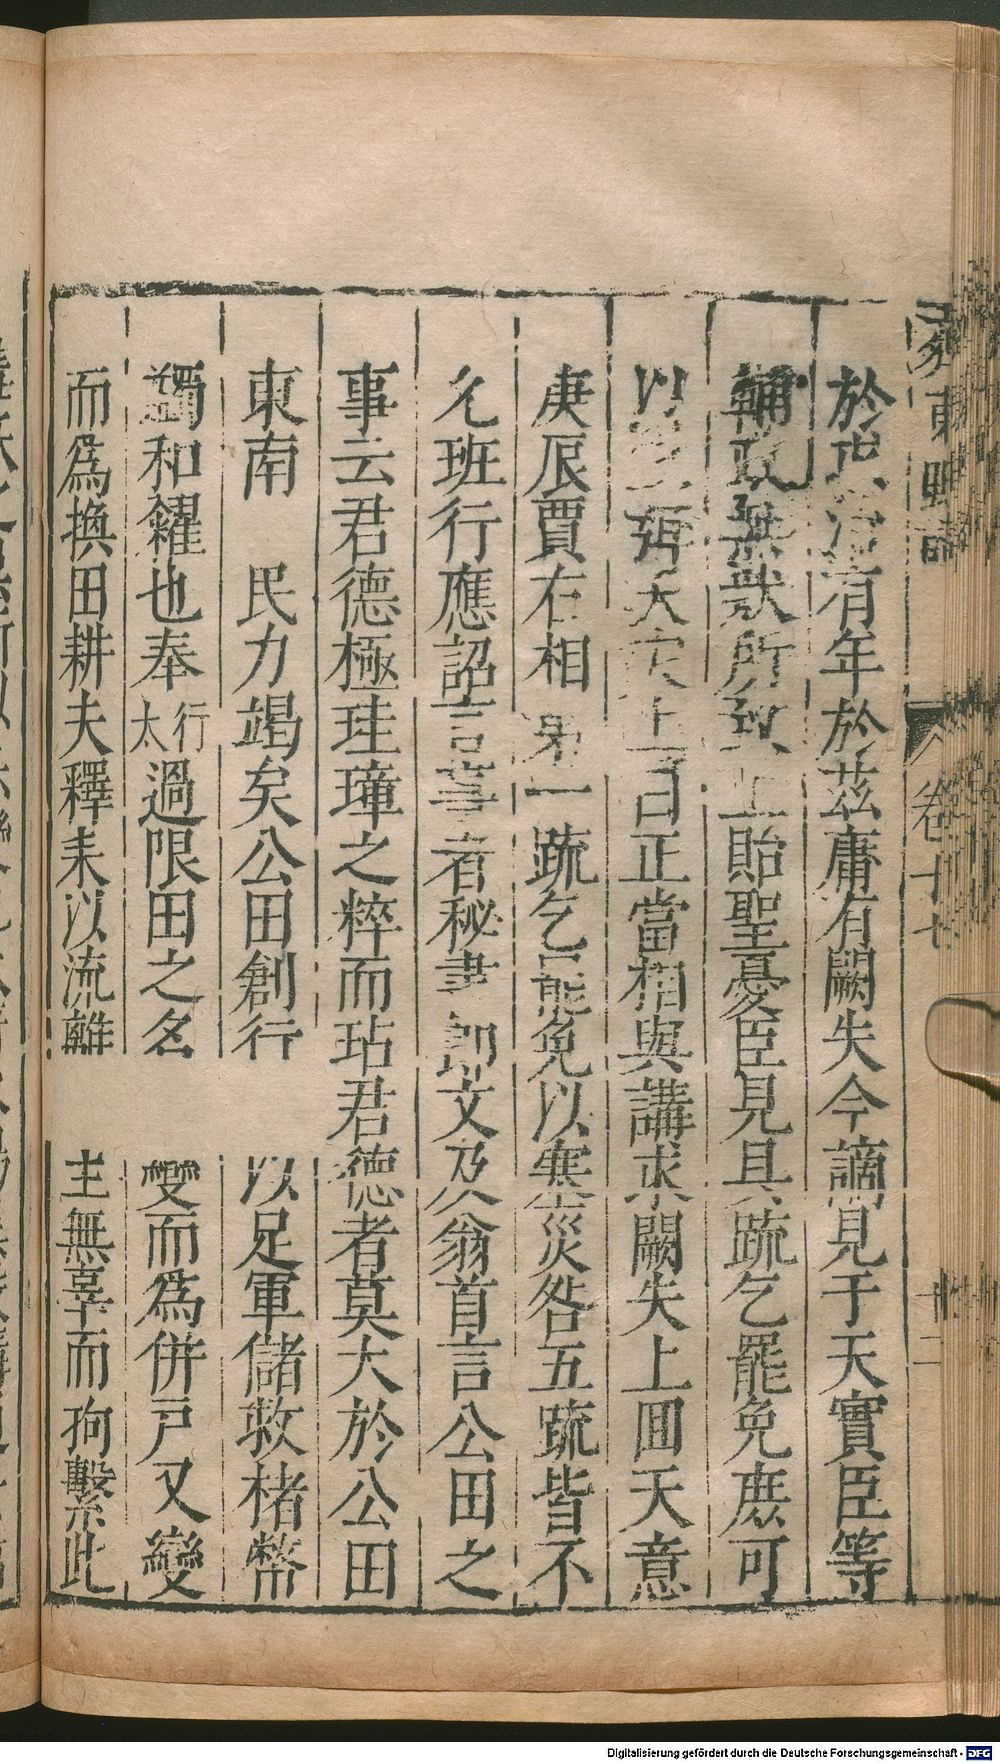 於忠有年於茲庸有闕失今謫見于天實臣等
輔政無狀所致上貽聖憂臣見具疏乞罷免庶可
以弭天災上曰正當相與講求闕失上回天意
庚辰賈右相第一疏乞罷免以塞災咎五疏皆不
允班行應詔言事者秘書郎文及翁首言公田之
事云君德極珪璋之粹而玷君德者莫大於公田
東南民力竭矣公田創行以足軍儲救楮幣
蠲和糴也奉行太過限田之名變而為併戶又變
而為換田耕夫釋耒以流離主無辜而拘繫此
齊東野語
卷十七
十二
Digitalisierung gefördert durch die Deutsche Forschungsgemeinschaft - DFG